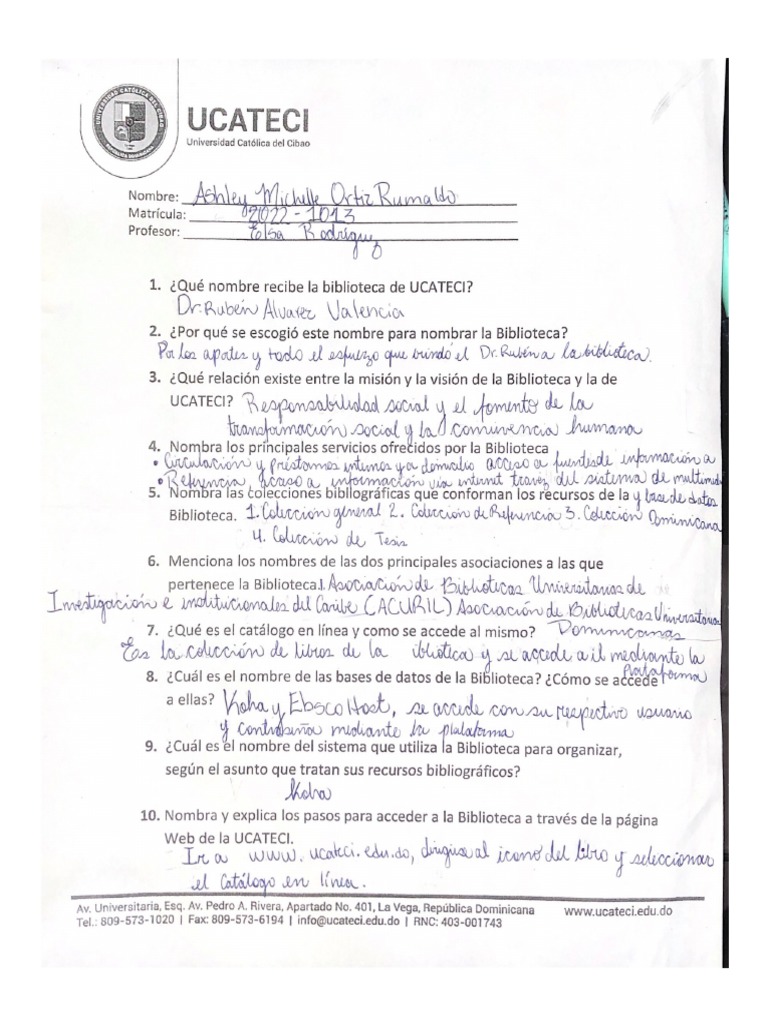 UNIVERSIDAD CATÓLICA DEL CIBAO
UCATECI
Universidad Católica del Cibao
Nombre: Ashley Michelle Ortiz Rumaldo
Matrícula: 2022-1013
Profesor: Elsa Rodríguez
1. ¿Qué nombre recibe la biblioteca de UCATECI?
Dr. Rubén Alvarez Valencia
2. ¿Por qué se escogió este nombre para nombrar la Biblioteca?
Por los aportes y todo el esfuerzo que brindó el Dr. Rubén a la biblioteca.
3. ¿Qué relación existe entre la misión y la visión de la Biblioteca y la de
UCATECI? Responsabilidad social y el fomento de la
transformación social y la convivencia humana
4. Nombra los principales servicios ofrecidos por la Biblioteca
• Circulación y préstamos internos y a domicilio acceso a fuentes de información a
• Referencia, acceso a información via internet travez del sistema de multimedia
5. Nombra las colecciones bibliográficas que conforman los recursos de la y base de datos
Biblioteca. 1. Colección general 2. Colección de Referencia 3. Colección Dominicana
4. Colección de Tesis
6. Menciona los nombres de las dos principales asociaciones a las que
pertenece la Biblioteca. 1. Asociación de Bibliotecas Universitarias de
Investigación e institucionales del Caribe (ACURIL) Asociación de Bibliotecas Universitarias
7. ¿Qué es el catálogo en línea y como se accede al mismo? Dominicanas
Es la colección de libros de la iblioteca y se accede a il mediante la
plataforma
8. ¿Cuál es el nombre de las bases de datos de la Biblioteca? ¿Cómo se accede
a ellas? Koha y EbscoHost, se accede con su respectivo usuario
y contraseña mediante la plataforma
9. ¿Cuál es el nombre del sistema que utiliza la Biblioteca para organizar,
según el asunto que tratan sus recursos bibliográficos?
Koha
10. Nombra y explica los pasos para acceder a la Biblioteca a través de la página
Web de la UCATECI.
Ir a www.ucateci.edu.do, dirigirse al icono del libro y seleccionar
el Catálogo en línea.
Av. Universitaria, Esq. Av. Pedro A. Rivera, Apartado No. 401, La Vega, República Dominicana www.ucateci.edu.do
Tel.: 809-573-1020 | Fax: 809-573-6194 | info@ucateci.edu.do | RNC: 403-001743